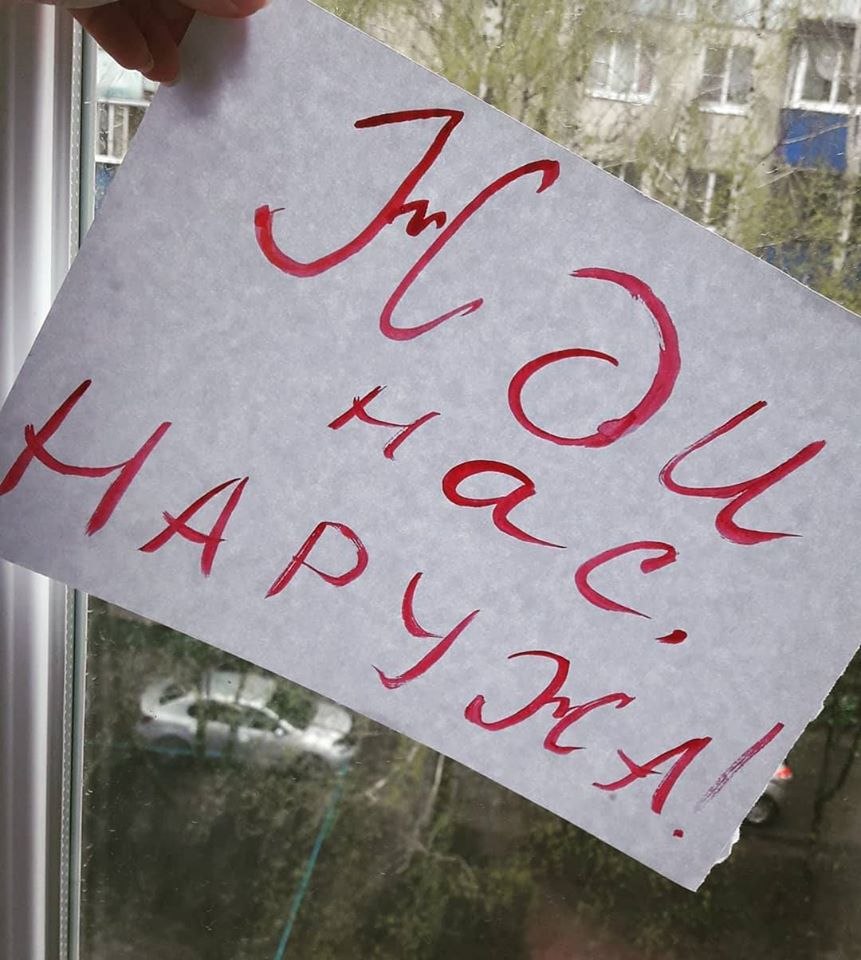 Жди
нас,
НАРУЖА!